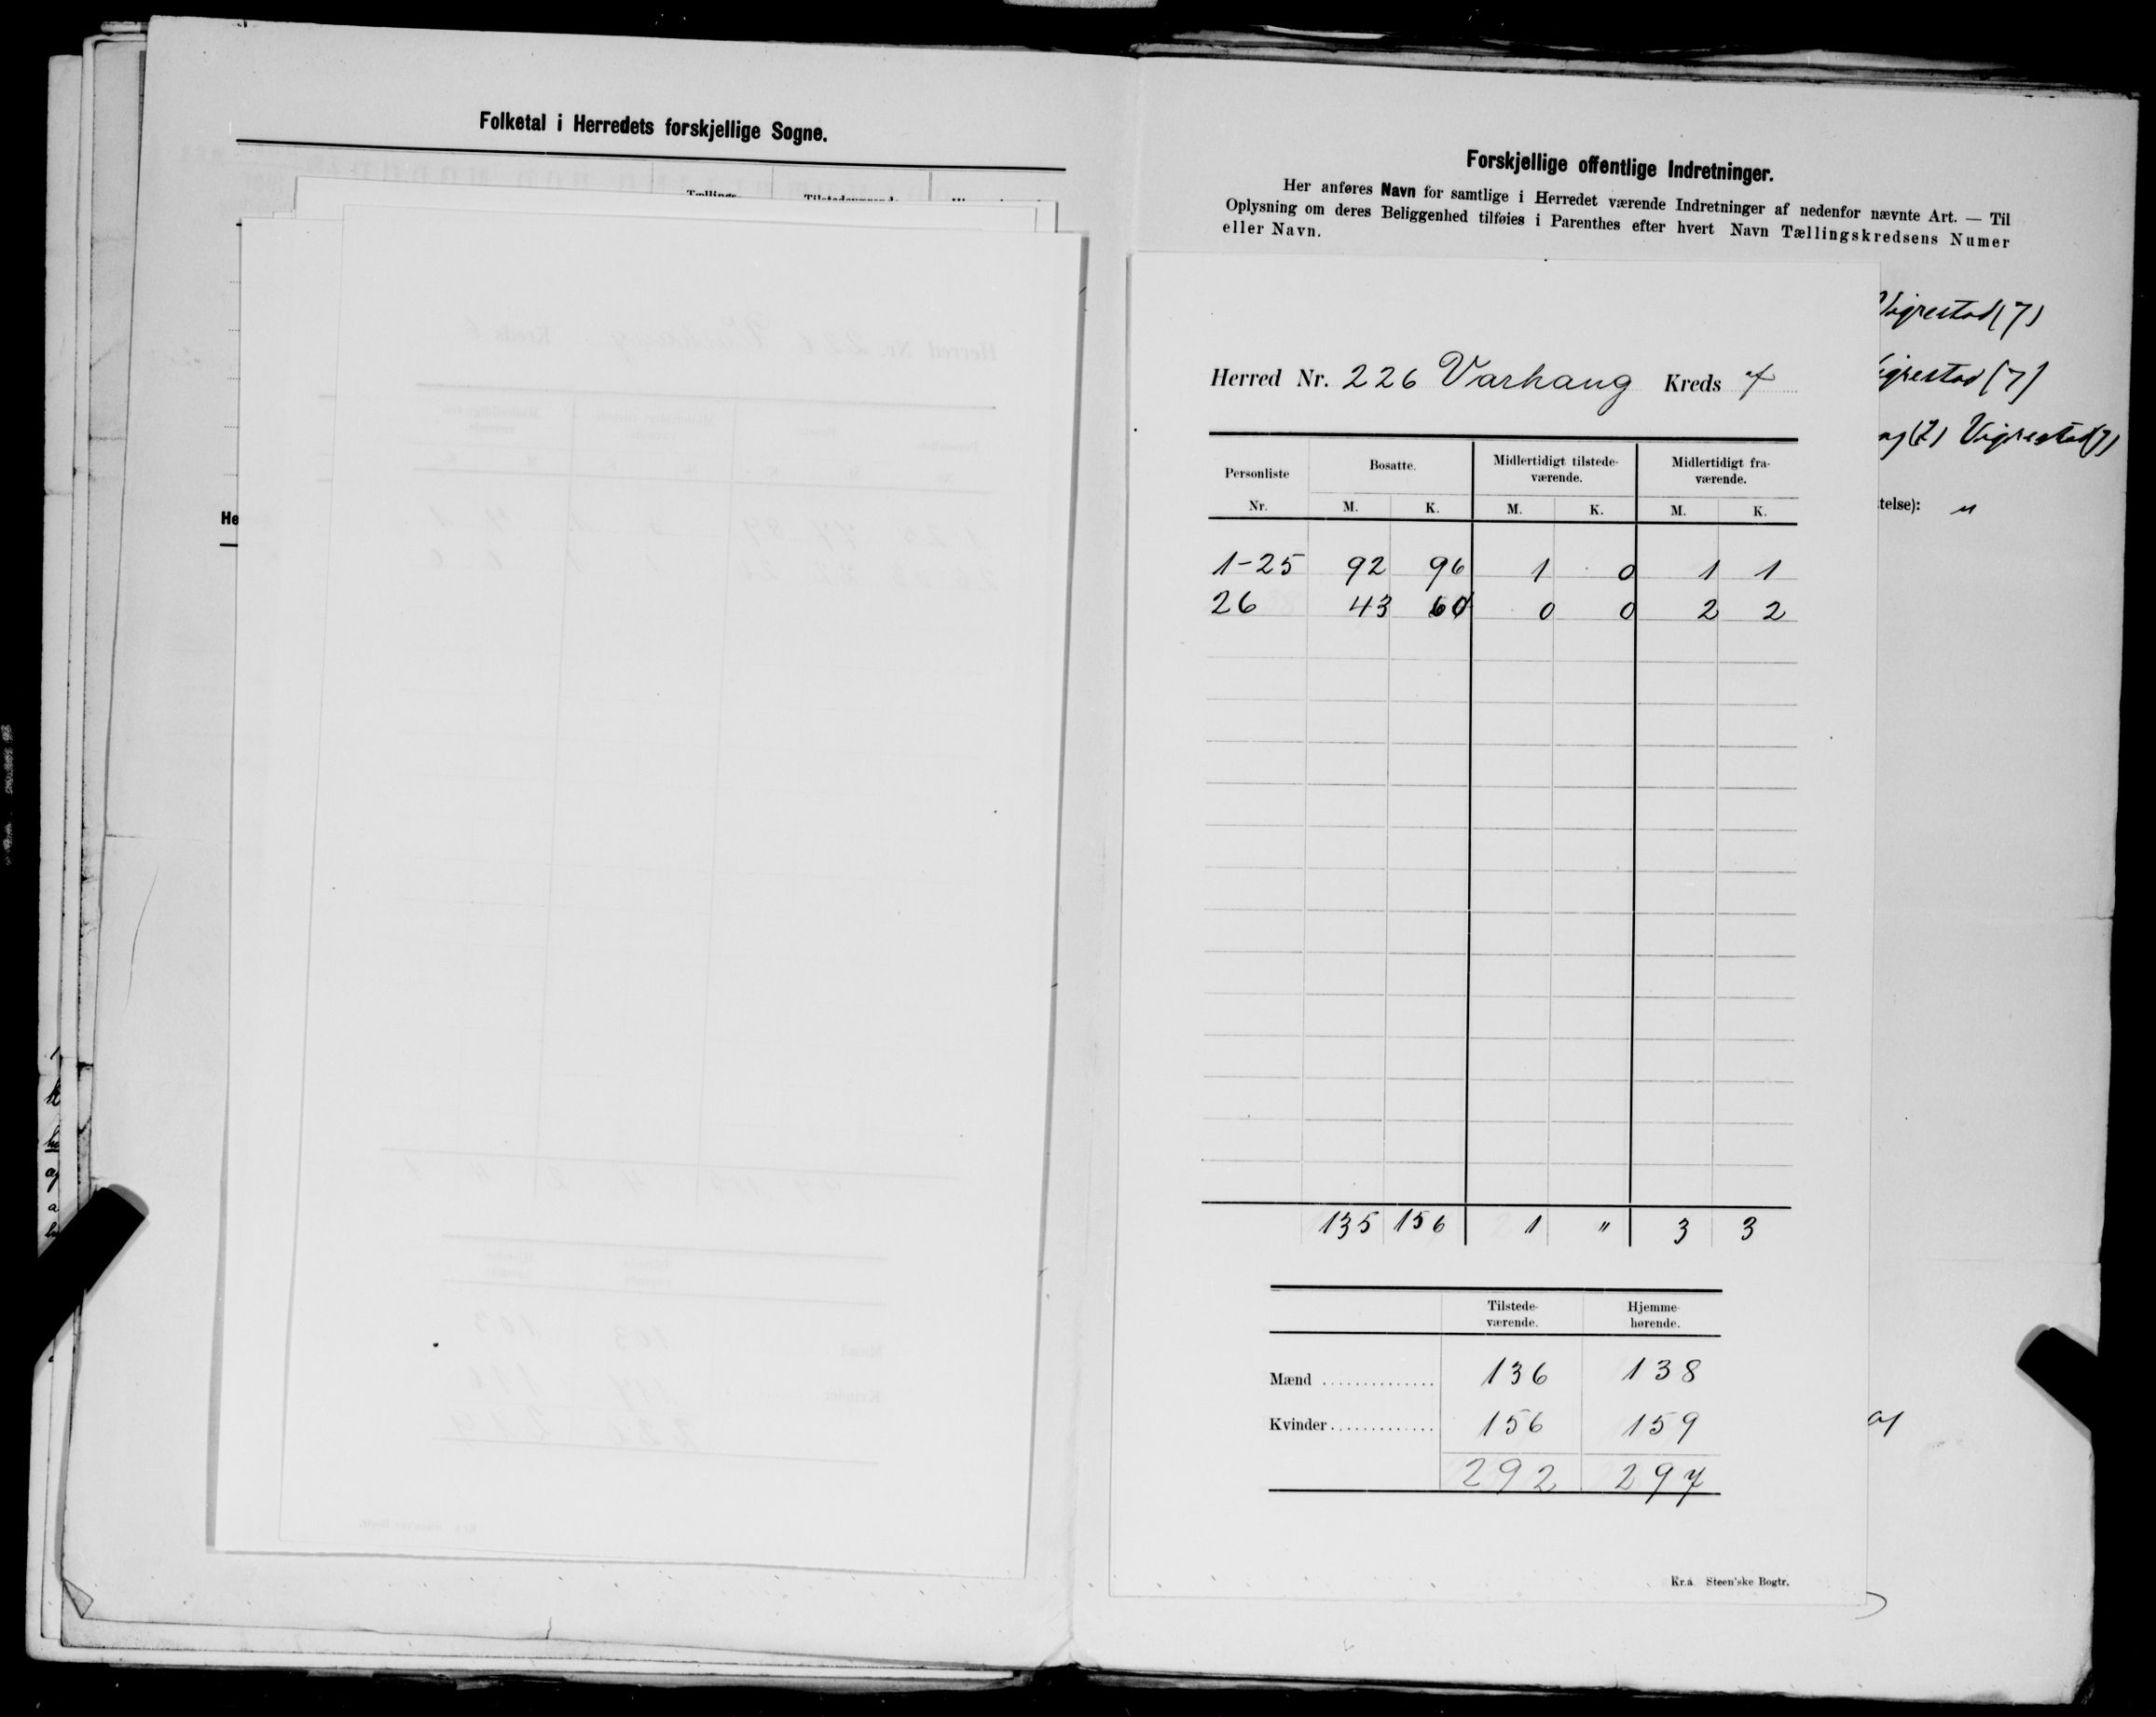 Folketal i Herredets forskjellige Sogne.
He
Forskjellige offentlige Indretninger.
Her anføres Navn for samtlige i Herredet værende Indretninger af nedenfor nævnte Art. — Til
Oplysning om deres Beliggenhed tilføies i Parenthes efter hvert Navn Tællingskredsens Numer
eller Navn.
Vigrestad (7)
igrestad (7)
Vigrestad (7)
telse): "
Herred Nr. 226 Varhaug Kreds 7
Personliste Bosatte. Midlertidigt tilstede- Midlertidigt fra-
værende. værende.
Nr. M. K. M. K. M. K.
1-25 92 96 1 0 1 1
26 43 60 0 0 2 2
135 156 1 " 3 3
Tilstede- Hjemme-
værende. hørende.
Mænd .............. 136 138
Kvinder ............. 156 159
292 297
Kr.a Steen'ske Bogtr.